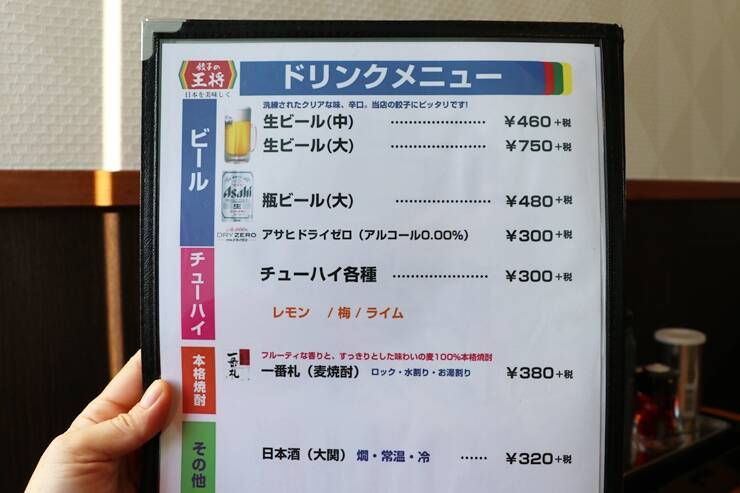 餃子の
王将
日本を美味しく
ドリンクメニュー
ビール
洗練されたクリアな味、辛口。当店の餃子にピッタリです!
生ビール(中) ………………… ¥460+税
生ビール(大) ………………… ¥750+税
Asahi
生
瓶ビール(大) ………………… ¥480+税
DRY ZERO
アサヒドライゼロ(アルコール0.00%) ¥300+税
チューハイ
チューハイ各種 ………………… ¥300+税
レモン / 梅 / ライム
本格焼酎
フルーティな香りと、すっきりとした味わいの麦100%本格焼酎
一番札
一番札(麦焼酎) ロック・水割り・お湯割り ¥380+税
その他
日本酒(大関) 燗・常温・冷 …… ¥320+税